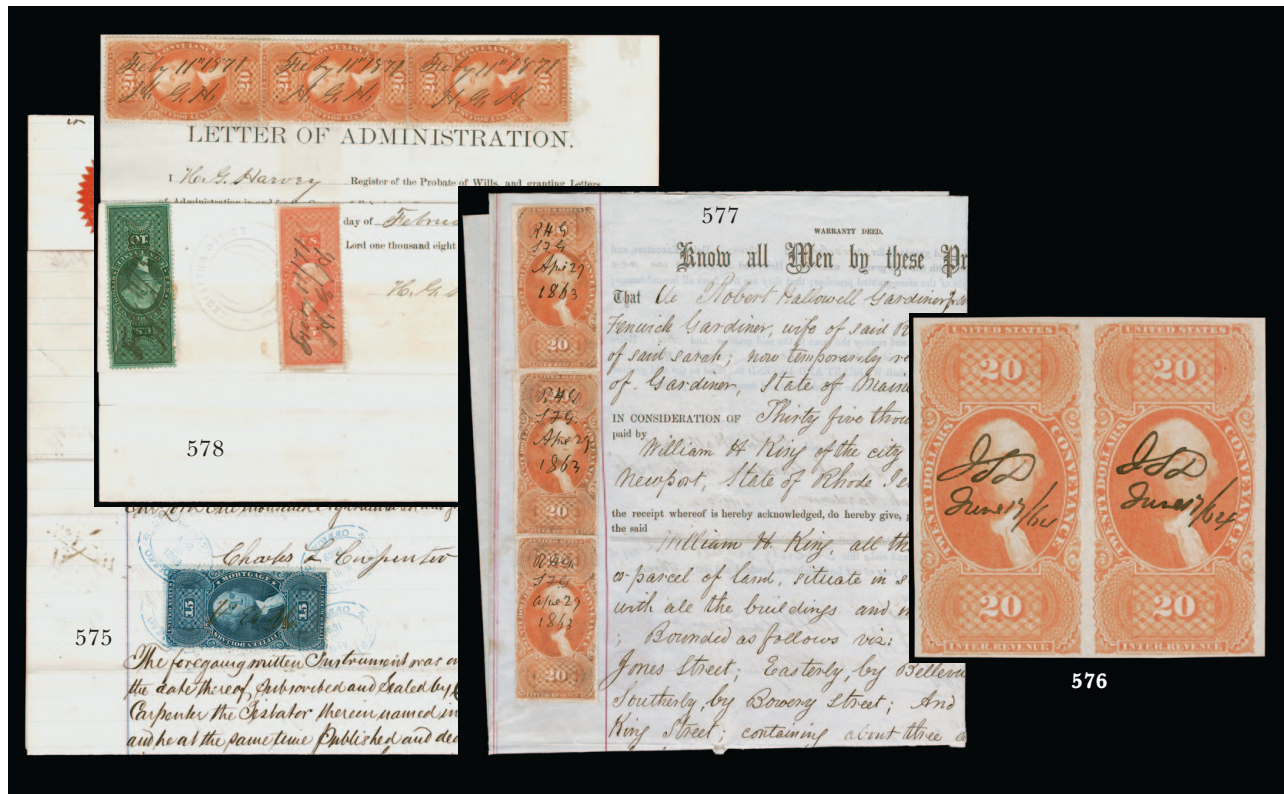 Feby 11th 1871
H. G. H.
Feby 11th 1871
H. G. H.
Feby 11th 1871
H. G. H.
CONVEYANCE
20
20
CONVEYANCE
20
20
CONVEYANCE
20
20
LETTER OF ADMINISTRATION.
I H. G. Harvey Register of the Probate of Wills, and granting Letters
of Administration in and
day of Februa
Lord one thousand eight
H. G.
10
578
Charles L Carpenter
MORTGAGE
15
15
FIFTEEN DOLLARS
575
The foregoing written Instrument was
the date thereof Subscribed and Sealed by
Carpenter the Testator therein named in
and he at the same time Published and dec
577
WARRANTY DEED.
Know all Men by these Pr
That We Robert Hallowell Gardiner
Fenwick Gardiner, wife of said R
of said Sarah; now temporarily re
of Gardiner, State of Maine
IN CONSIDERATION OF Thirty five thou
paid by
William H King of the city
Newport, State of Rhode Isl
the receipt whereof is hereby acknowledged, do hereby give,
the said
William H. King, all th
or parcel of land, situate in s
with all the buildings and i
; Bounded as follows viz:
Jones Street; Easterly, by Bellevu
Southerly by Bowery Street; And
King Street; containing about three a
RHG
Apr 29
1863
20
RHG
Apr 29
1863
20
RHG
Apr 29
1863
20
UNITED STATES
20
TWENTY DOLLARS
CONVEYANCE
JSD
June 17/64
20
INTER. REVENUE
UNITED STATES
20
TWENTY DOLLARS
CONVEYANCE
JSD
June 17/64
20
INTER. REVENUE
576